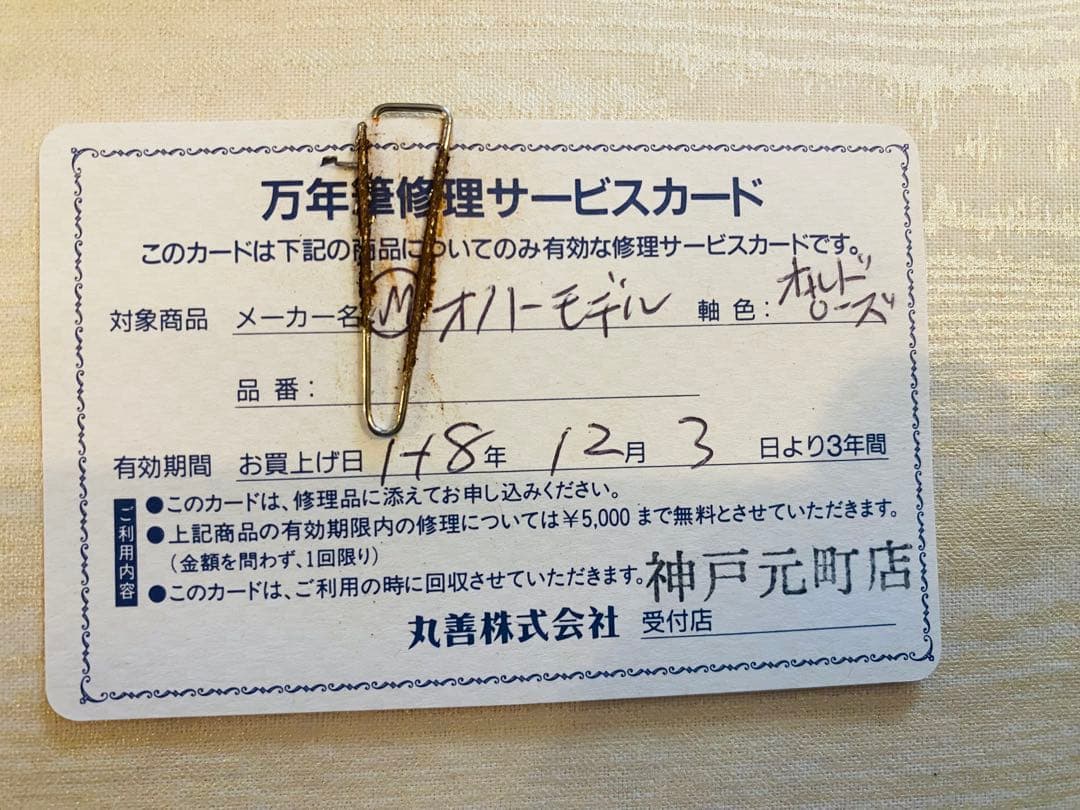 万年筆修理サービスカード
このカードは下記の商品についてのみ有効な修理サービスカードです。
対象商品 メーカー名 Ⓜ オノトモデル 軸色：オールドローズ
品番：
有効期間 お買上げ日 H8年 12月 3 日より3年間
ご利用内容
●このカードは、修理品に添えてお申し込みください。
●上記商品の有効期限内の修理については￥5,000まで無料とさせていただきます。
（金額を問わず、1回限り）
●このカードは、ご利用の時に回収させていただきます。
神戸元町店
丸善株式会社 受付店